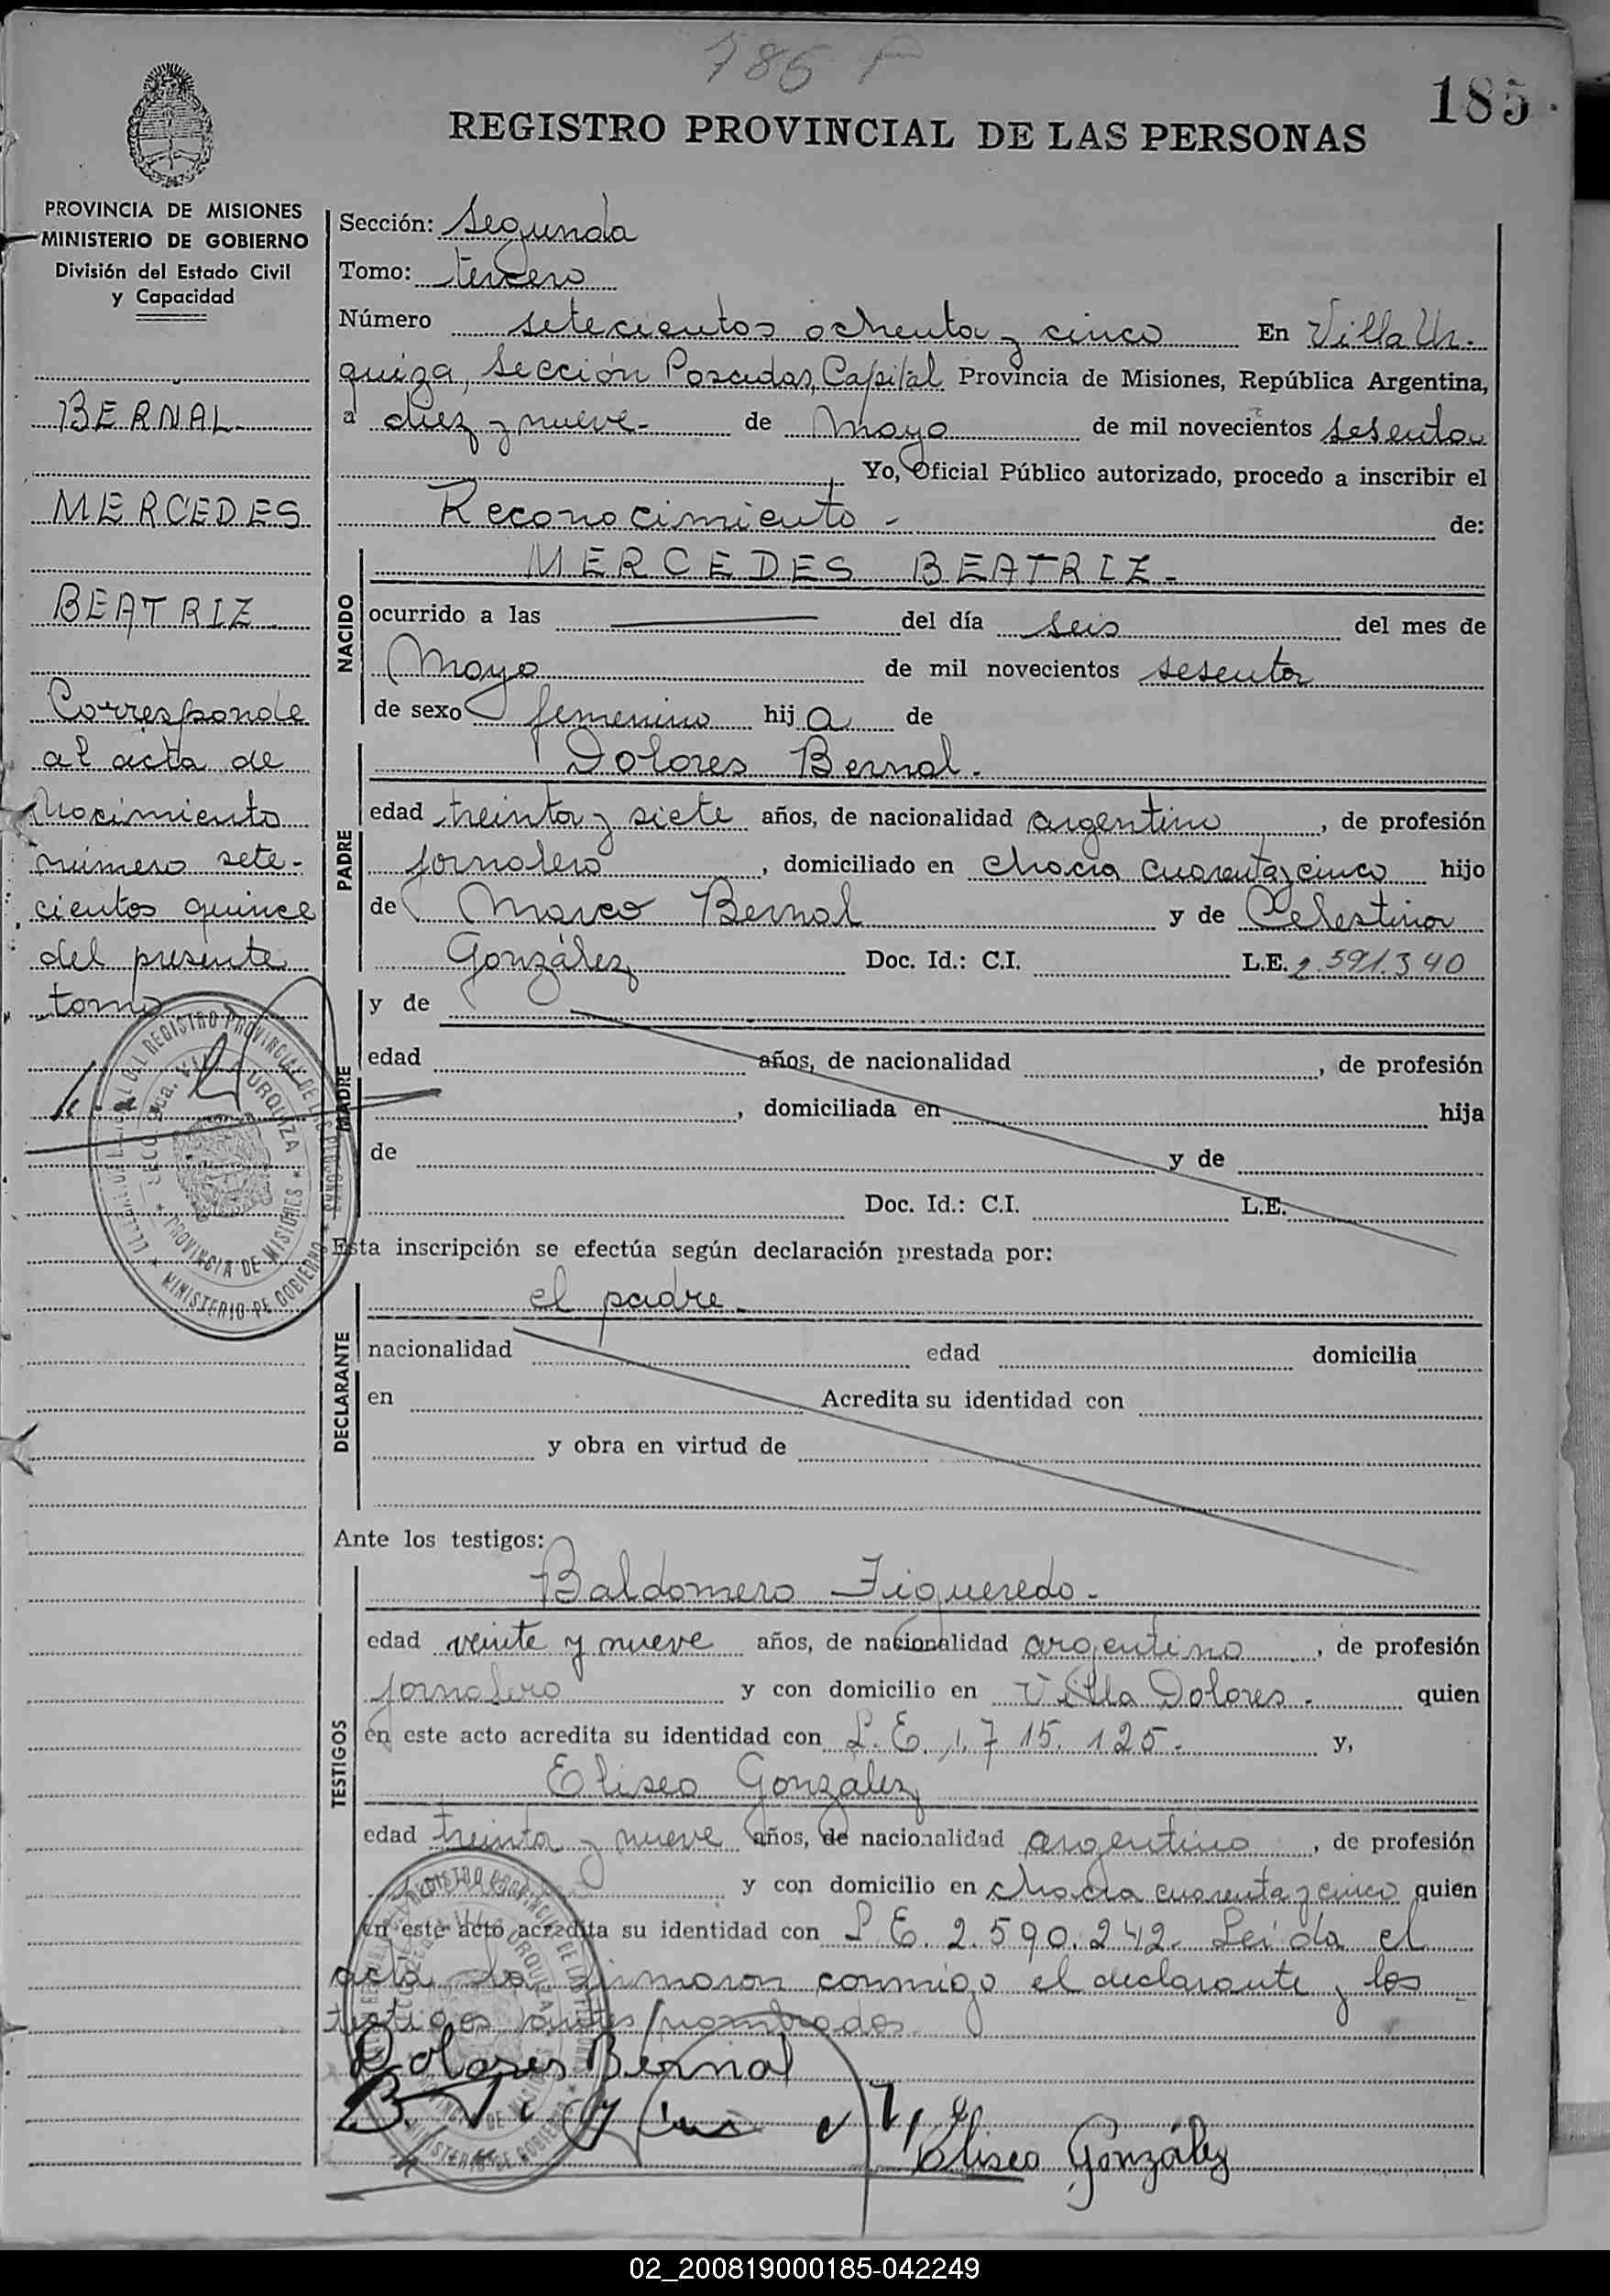 785 F
185
REGISTRO PROVINCIAL DE LAS PERSONAS
PROVINCIA DE MISIONES
MINISTERIO DE GOBIERNO
División del Estado Civil
y Capacidad
BERNAL
MERCEDES
BEATRIZ
Corresponde
al acta de
Nacimiento
número sete-
cientos quince
del presente
tomo
Sección: Segunda
Tomo: tercero
Número setecientos ochenta y cinco En Villa Ur-
quiza, Sección Posadas, Capital Provincia de Misiones, República Argentina,
a diez y nueve- de Mayo de mil novecientos sesenta
Yo, Oficial Público autorizado, procedo a inscribir el
Reconocimiento - de:
NACIDO
MERCEDES BEATRIZ-
ocurrido a las —— del día seis del mes de
Mayo de mil novecientos sesenta
de sexo femenino hija de
PADRE
Dolores Bernal.
edad treinta y siete años, de nacionalidad argentino, de profesión
jornalero, domiciliado en chacra cuarenta y cinco hijo
de Marco Bernal y de Celestina
González Doc. Id.: C.I. L.E. 2.591.340
MADRE
y de
edad años, de nacionalidad , de profesión
, domiciliada en hija
de y de
Doc. Id.: C.I. L.E.
Esta inscripción se efectúa según declaración prestada por:
DECLARANTE
el padre-
nacionalidad edad domicilia
en Acredita su identidad con
y obra en virtud de
Ante los testigos:
TESTIGOS
Baldomero Figueredo-
edad veinte y nueve años, de nacionalidad argentino, de profesión
jornalero y con domicilio en Villa Dolores- quien
en este acto acredita su identidad con L.E. 1.715.125- y,
Eliseo Gonzalez
edad treinta y nueve años, de nacionalidad argentino, de profesión
y con domicilio en chacra cuarenta y cinco quien
en este acto acredita su identidad con L.E. 2.590.242- Leída el
acta la firmaron conmigo el declarante y los
testigos antes nombrados
Dolores Bernal
Eliseo González
02_200819000185-042249